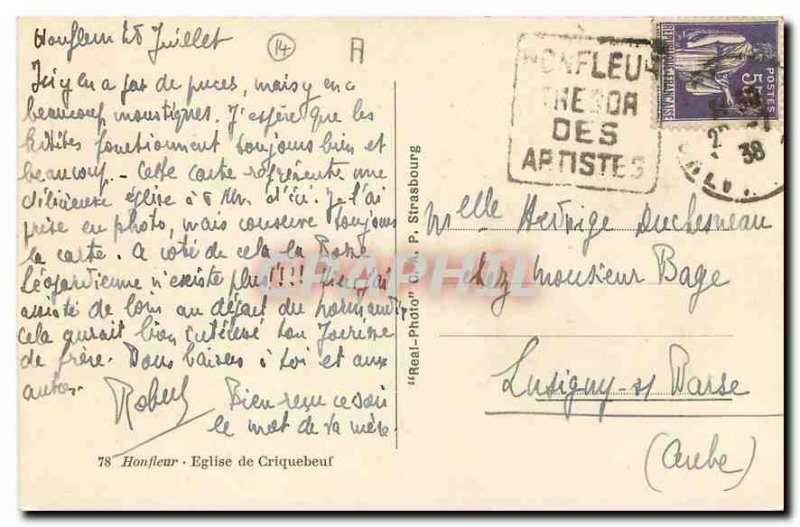 Honfleur 25 Juillet
14
A
Ici y en a pas de puces, mais y en a
beaucoup moustiques. J'espère que les
fonctionnent toujours bien et
beaucoup. - Cette carte représente une
délicieuse église à 5 Km. d'ici. Je l'ai
prise en photo, mais conserve toujours
la carte. A coté de cela la
n'existe plus!!! Hier j'ai
assisté de loin au départ du
cela aurait bien intéressé ton
de frère. Doux baisers à toi et aux
autres.
Robert
Bien reçu ce soir
le mot de ta mère.
78 Honfleur - Eglise de Criquebeuf
"Real-Photo" C. A. P. Strasbourg
HONFLEUR
TRESOR
DES
ARTISTES
POSTES
38
Mlle Hedwige Duchesneau
chez Monsieur Bage
Lusigny-s/ Barse
(Aube)